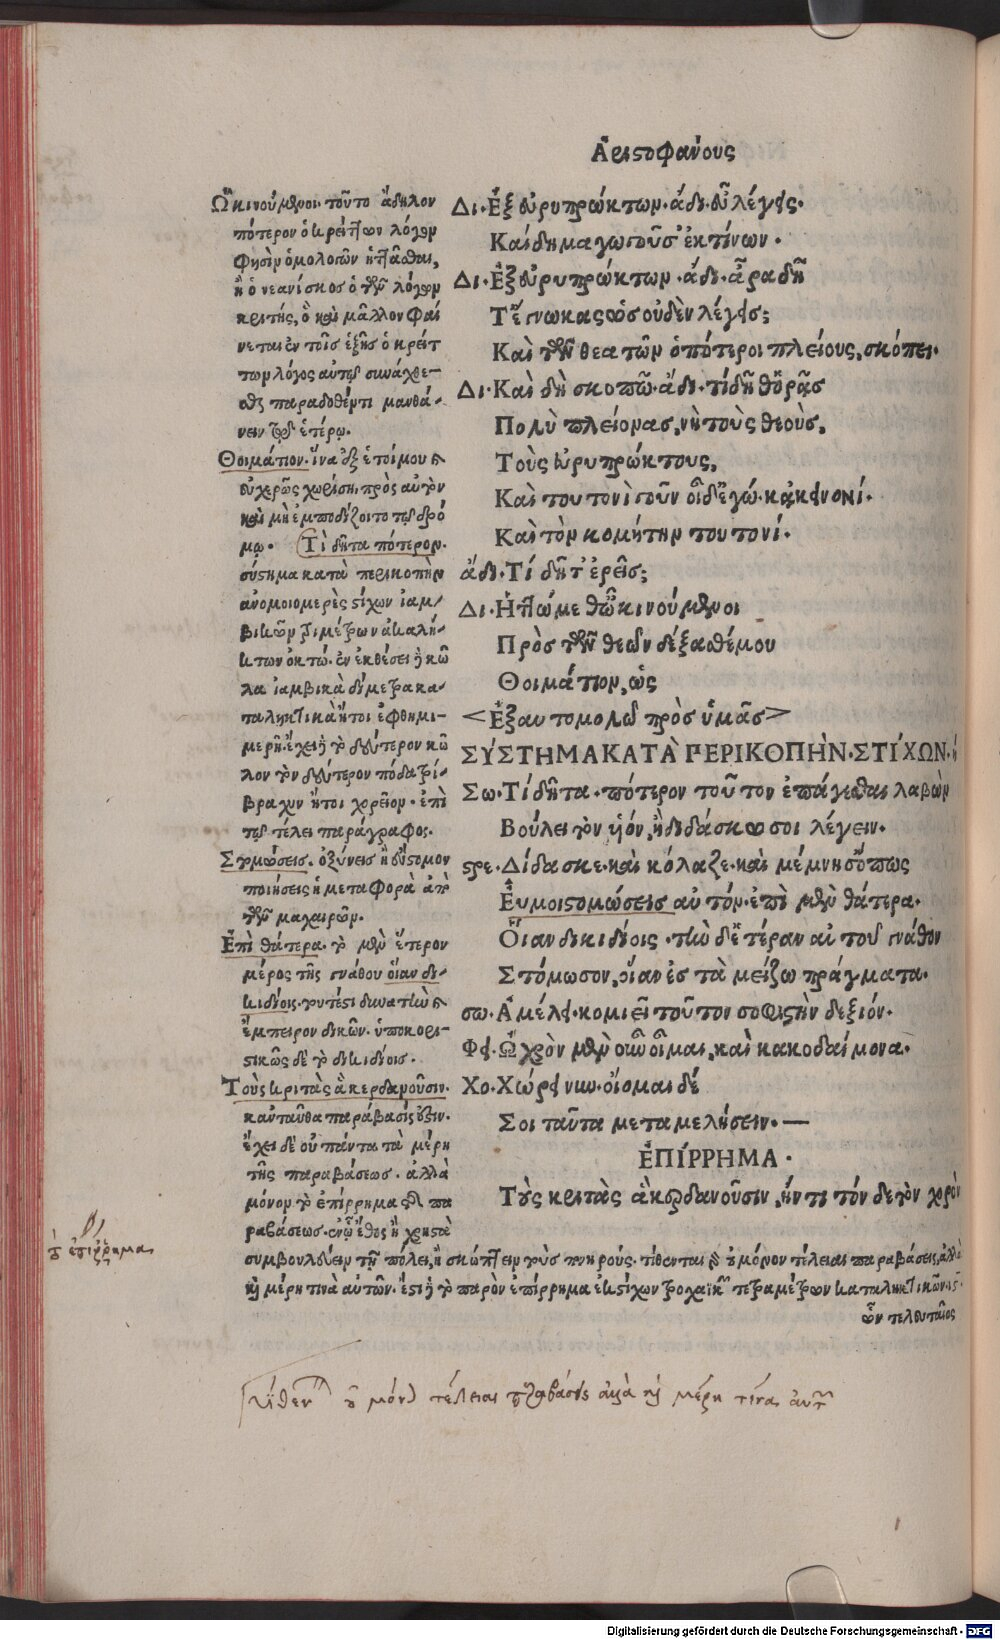 Ἀριστοφάνους
Ὦ κινούμενοι· τοῦτο ἄδηλον
πότερον ὁ κρείττων λόγος
φησὶν ὁμολογῶν ἡττᾶσθαι,
ἢ ὁ νεανίσκος ὁ τῶν λόγων
κριτής, ὃ καὶ μᾶλλον φαί
νεται ἐν τοῖς ἑξῆς ὁ κρείτ
των λόγος αὐτῷ συνάχθε-
σθαι παραδοθέντι μανθά-
νειν τῷ ἑτέρῳ.
Θοιμάτιον. ἵνα ἐξ ἑτοίμου καὶ
εὐχερῶς χωρίσῃ πρὸς αὐτὸν
καὶ μὴ ἐμποδίζοιτο τῷ δρό
μῳ. Τί δῆτα πότερον.
σύστημα κατὰ περικοπὴν
ἀνομοιομερὲς στίχων ἰαμ-
βικῶν τριμέτρων ἀκαταλή-
κτων ὀκτώ. ἐν ἐκθέσει δὲ κῶ
λα ἰαμβικὰ δίμετρα κα-
ταληκτικὰ ἤτοι ἑφθημι-
μερῆ. ἔχει δὲ τὸ δεύτερον κῶ
λον τὸν δεύτερον πόδα τρί-
βραχυν ἤτοι χορεῖον. ἐπὶ
τῷ τέλει παράγραφος.
Στομώσεις. ὀξύνεις ἢ εὔστομον
ποιήσεις ἡ μεταφορὰ ἀπὸ
τῶν μαχαιρῶν.
Ἐπὶ θάτερα. τὸ μὲν ἕτερον
μέρος τῆς γνάθου οἵαν δι-
κιδίοις. τουτέστι δυνατὴν καὶ
ἔμπειρον δικῶν. ὑποκορι-
στικῶς δὲ τὸ δικιδίοις.
Τοὺς κριτὰς ἃ κερδανοῦσιν.
κἀνταῦθα παράβασίς ἐστιν.
ἔχει δὲ οὐ πάντα τὰ μέρη
τῆς παραβάσεως. ἀλλὰ
μόνον τὸ ἐπίρρημα τῆς πα
ραβάσεως. ἐν ᾧ ἔθος ἢ χρηστὰ
συμβουλεύειν τῇ πόλει, ἢ σκώπτειν τοὺς πονηρούς. τίθενται δὲ οὐ μόνον τέλειαι παραβάσεις, ἀλλὰ
καὶ μέρη τινὰ αὐτῶν. ἔστι δὲ τὸ παρὸν ἐπίρρημα ἐκ στίχων τροχαϊκῶν τετραμέτρων καταληκτικῶν
ὧν τελευταῖος
Δι. Ἐξ εὐρυπρώκτων. ἄδι. εὖ λέγεις.
Καὶ δημαγωγοῦσ' ἐκ τίνων.
Δι. Ἐξ εὐρυπρώκτων. ἄδι. ἆρα δῆ
Τ' ἔγνωκας ὡς οὐδὲν λέγεις;
Καὶ τῶν θεατῶν ὁπότεροι πλείους, σκόπει.
Δι. Καὶ δὴ σκοπῶ. ἄδι. τί δῆθ' ὁρᾷς
Πολὺ πλείονας, νὴ τοὺς θεοὺς,
Τοὺς εὐρυπρώκτους,
Καὶ τουτονὶ γοῦν οἶδ' ἐγώ. κἀκεινονί.
Καὶ τὸν κομήτην τουτονί.
ἄδι. Τί δῆτ' ἐρεῖς;
Δι. Ἡττώμεθ' ὦ κινούμενοι
Πρὸς τῶν θεῶν δέξασθέ μου
Θοιμάτιον, ὡς
<Ἐξαυτομολῶ πρὸς ὑμᾶς>
ΣΎΣΤΗΜΑ ΚΑΤᾺ ΠΕΡΙΚΟΠῊΝ. ΣΤΊΧΩΝ. ή
Σω. Τί δῆτα. πότερον τοῦτον ἐπάγεσθαι λαβὼν
Βούλει τὸν υἱόν, ἢ διδάσκω σοι λέγειν.
στρε. Δίδασκε. καὶ κόλαζε. καὶ μέμνησ' ὅπως
Εὖ μοι στομώσεις αὐτόν. ἐπὶ μὲν θάτερα.
Οἵαν δικιδίοις. τὴν δ' ἑτέραν αὐτοῦ γνάθον
Στόμωσον, οἵαν ἐς τὰ μείζω πράγματα.
σω. Ἀμέλει. κομιεῖ τοῦτον σοφιστὴν δεξιόν.
Φει. Ὠχρὸν μὲν οὖν οἶμαι, καὶ κακοδαίμονα.
Χο. Χώρει νυν. οἴομαι δέ
Σοι ταῦτα μεταμελήσειν.—
ἘΠΊΡΡΗΜΑ.
Τοὺς κριτὰς ἃ κερδανοῦσιν, ἤν τι τόνδε τὸν χορὸν
τὸ ἐπίρρημα
τίθεν οὐ μόνον τέλειαι παραβάσεις ἀλλὰ καὶ μέρη τίνα αὐτῶν
Digitalisierung gefördert durch die Deutsche Forschungsgemeinschaft - DFG